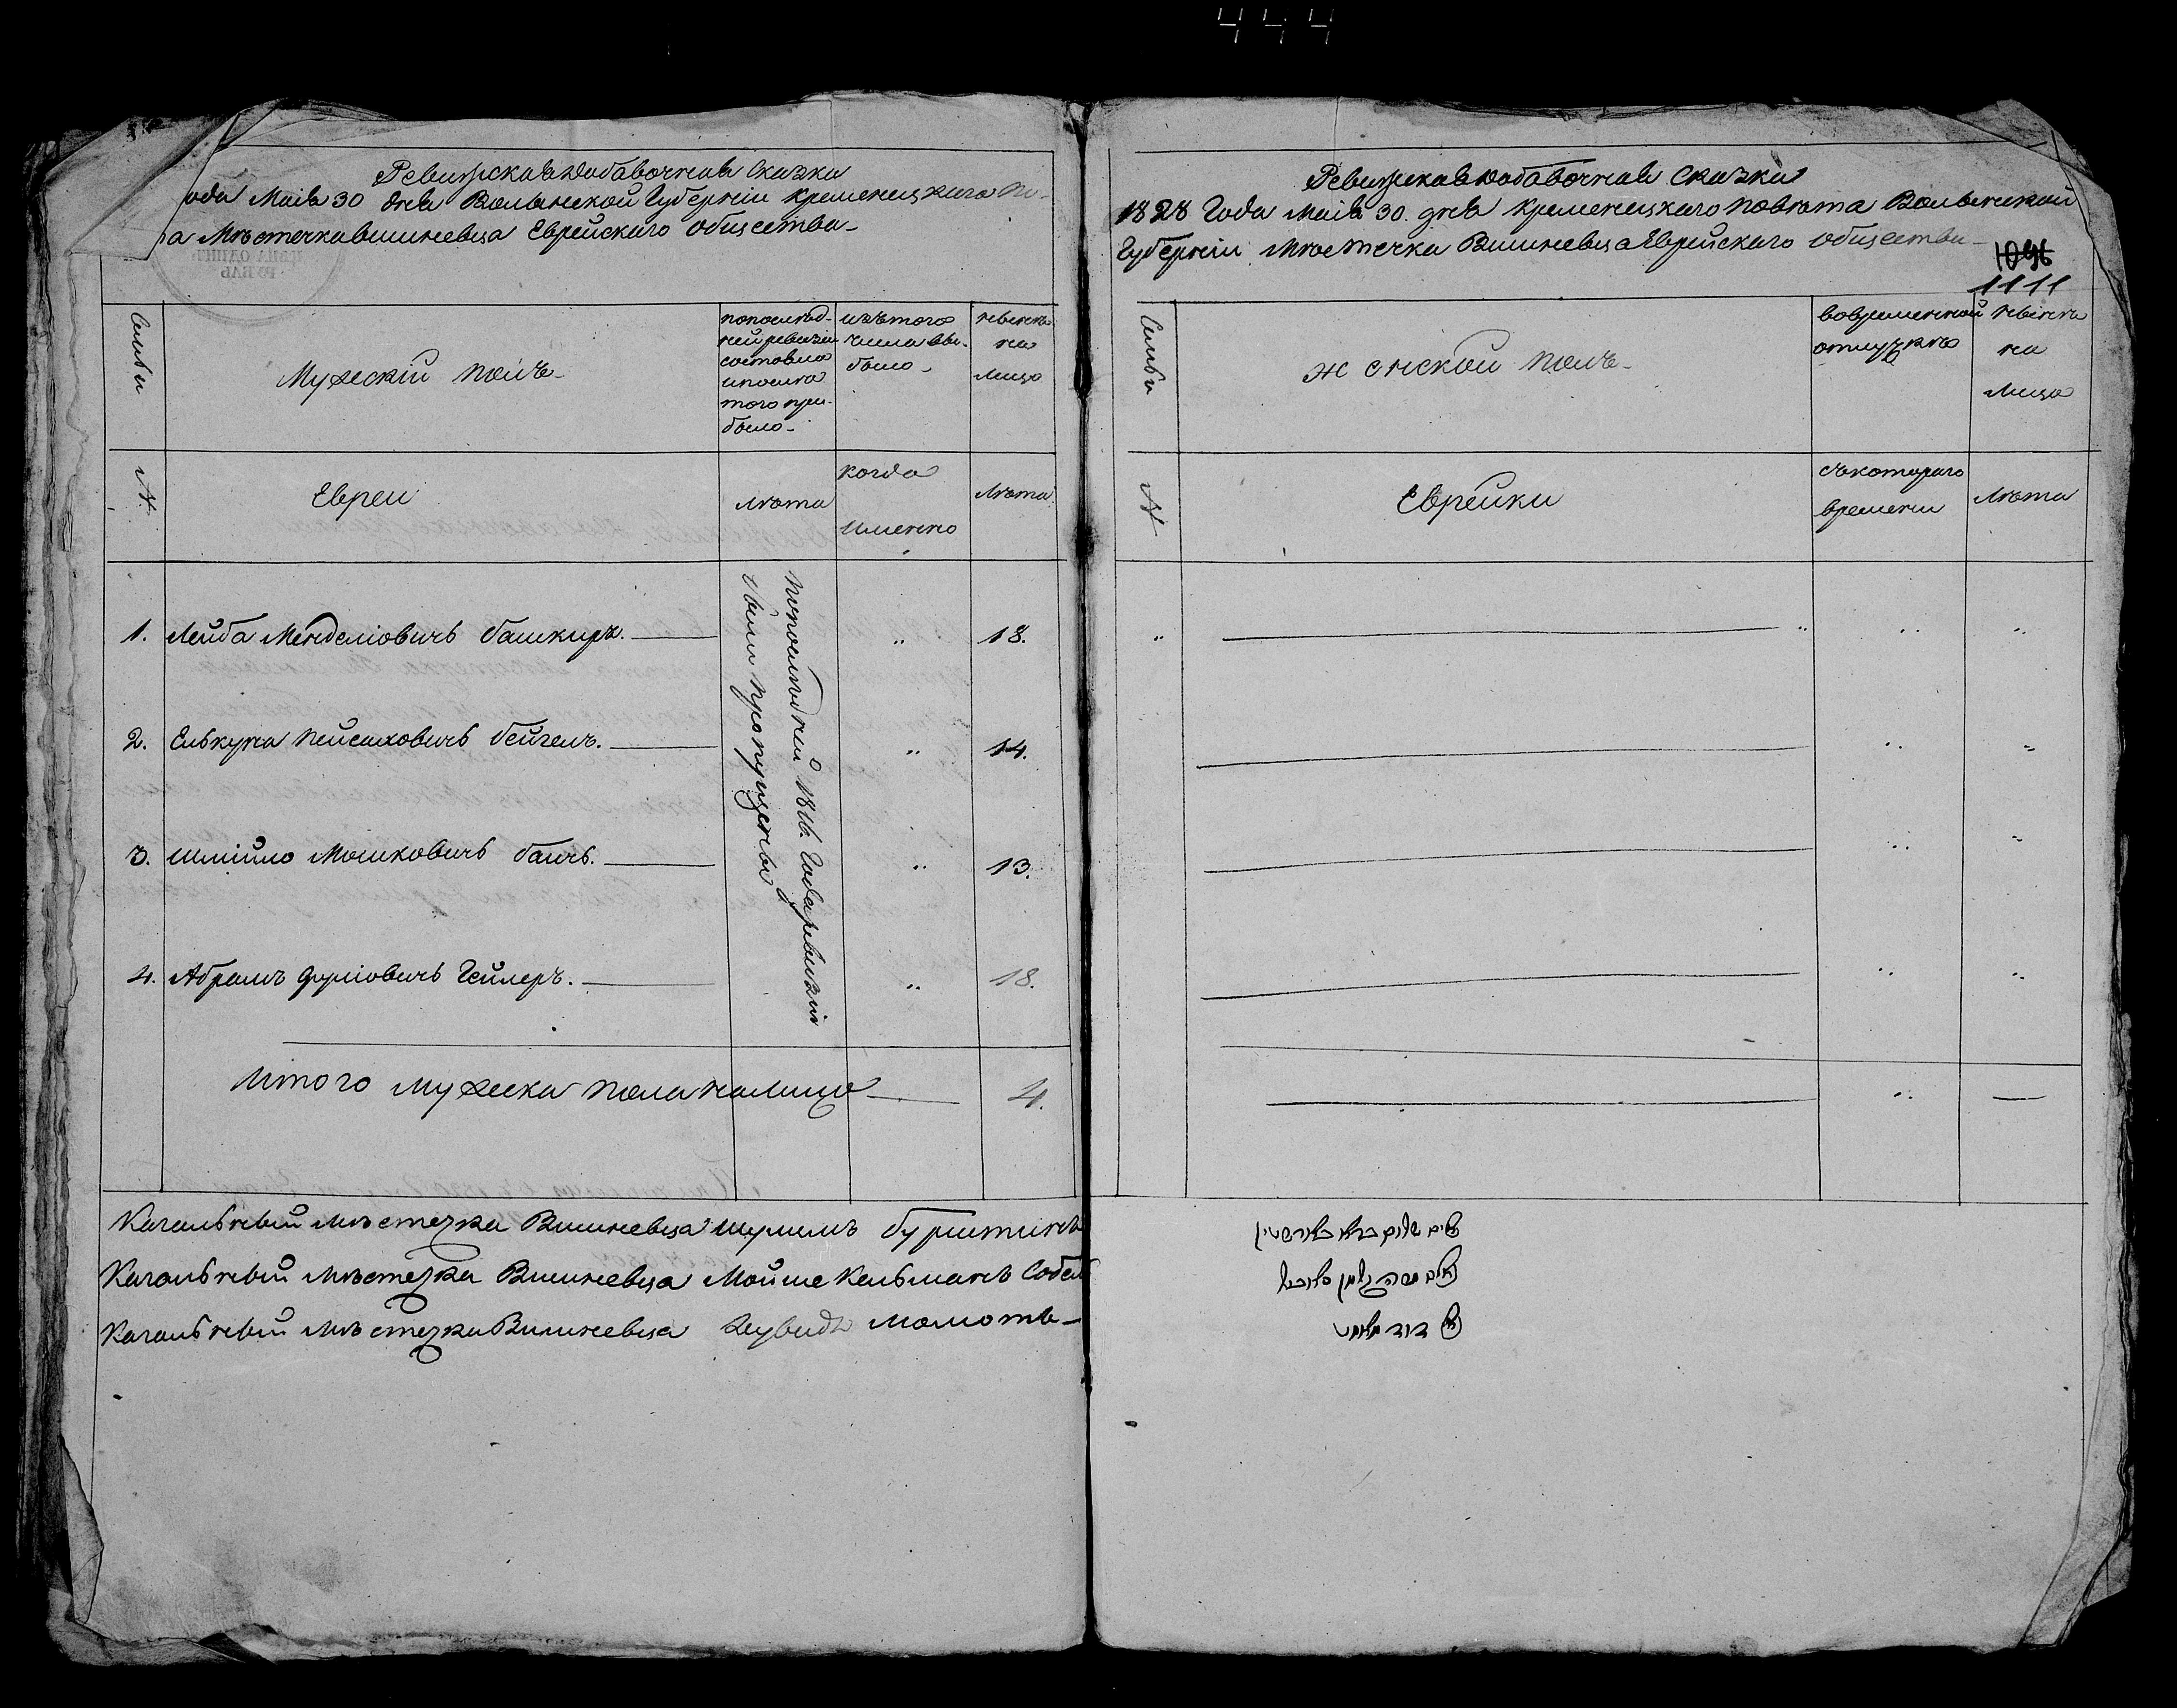 444
Ревизская Добавочная Сказка
ода Маія 30 дня Волынской Губерніи Кременецкаго По-
а Мѣстечка Вишневца Еврейскаго общества
ЦѢНА ОДИНЪ
РУБЛЬ
Семьи
Мужескій полъ
по послѣд-
ней ревизіи
состояло
и послѣ
того при-
было
изъ того
числа вы-
было
нынѣ
на
лицо
№
Евреи
лѣта
когда
именно
лѣта
1. Лейба Менделіовичъ Башкиръ. „ 18.
2. Елькуна Пейсаховичъ Бейгелъ. „ 14.
3. Шмійло Мошковичъ Бачъ. „ 13.
4. Абрамъ Фроіовичъ Гейлеръ. „ 18.
по послѣдней 1816. Года ревизіи
были пропущены
Итого мужеска пола налицо 4.
Кагальный мѣстечка Вишневца Шулимъ Бурштинъ
Кагальный мѣстечка Вишневца Мойше Кельманъ Собел
Кагальный мѣстечка Вишневца Дувидъ Маламъ
Ревизская Добавочная Сказка
1828 Года Маія 30. дня Кременецкаго Повѣта Волынской
Губерніи Мѣстечка Вишневца Еврейскаго общества
1096
1111
Семьи
Женской полъ
во временной
отлучкѣ
нынѣ
на
лицо
№
Еврейки
съ котораго
времени
лѣта
שלום
משה
דוד